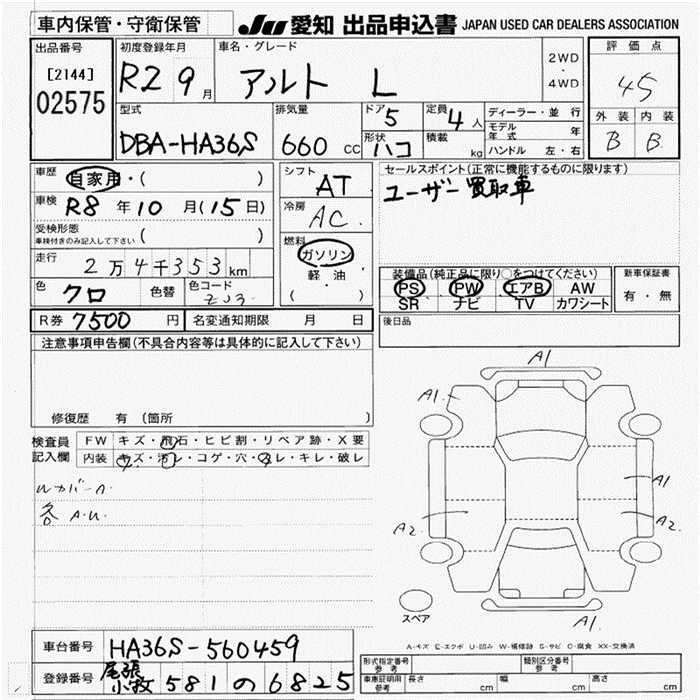 車内保管・守衛保管
JU 愛知 出品申込書 JAPAN USED CAR DEALERS ASSOCIATION
出品番号
[2144]
02575
初度登録年月
R2 9月
車名・グレード
アルト L
2WD
・
4WD
評価点
45
外装 内装
B B
型式
DBA-HA36S
排気量
660 cc
ドア 5
形状 ハコ
定員 4人
積載 kg
ディーラー・並行
モデル年式 年
ハンドル 左・右
車歴
自家用・( )
車検
R8年10月(15日)
受検形態
車検付きのみ記入して下さい ( )
走行
2万4千353km
色
クロ
色替
色コード
ZJ3
シフト
AT
冷房
AC
燃料
ガソリン
軽油
( )
セールスポイント(正常に機能するものに限ります)
ユーザー買取車
装備品(純正品に限り○をつけてください)
PS PW エアB AW
SR ナビ TV カワシート
新車保証書
有・無
R券 7500円
名変通知期限 月 日
後日品
注意事項申告欄(不具合内容等は具体的に記入して下さい)
修復歴 有 (箇所 )
検査員記入欄
FW キズ・飛石・ヒビ割・リペア跡・X要
内装 キズ・汚レ・コゲ・穴・スレ・キレ・破レ
ルカバーA
各 A.U.
A1
A1.
A1
A2
A2
A1.
スペア
A-キズ E-エクボ U-凹み W-補修跡 S-サビ C-腐食 XX-交換済
車台番号
HA36S-560459
登録番号
尾張小牧 581 の 6825
形式指定番号 参考
類別区分番号 参考
車庫証明用 参考
長さ cm
幅 cm
高さ cm